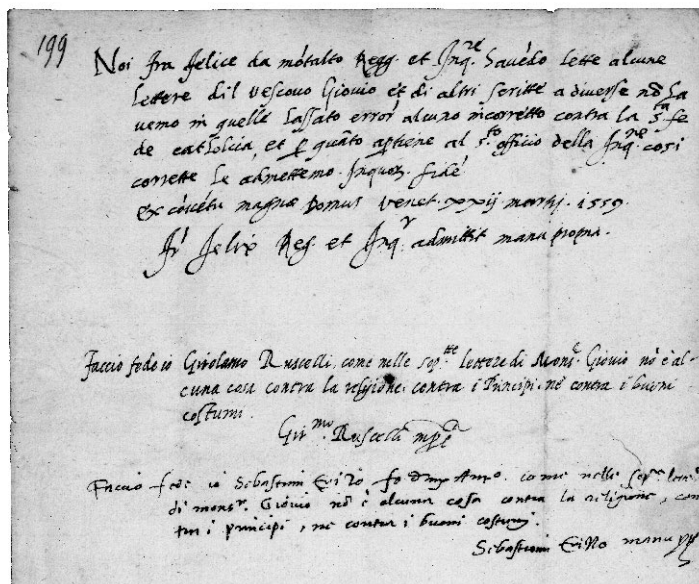 199
Noi fra felice da mōtalto Regg. et Inq.re havēdo lette alcune
lettere dil vescovo Giovio et di altri scritte a diverse nō ha
vemo in quelle lassato error' alcuno incorretto contra la s.ta fe
de catholcia, et p quāto aptiene al s.to officio della Inq.ne cosi
corrette le admettemo. fidē
ex cōvētu magnæ Domus Venet. xxij martij. 1559.
fr' felix Reg. et Inq.r admittit manu propria.
Faccio fede io Girolamo Ruscelli, come nelle sop.tte lettere di Mons.r Giovio nō è al-
cuna cosa contra la religione, contra i Principi, nè contra i buoni
costumi.
Gir.mo Ruscelli mp
Faccio fede io Sebastian come nelle sop.te lettere
di mons.r Giovio nō è alcuna cosa contra la religione, con
tra i principi, ne contra i buoni costumi.
Sebastian manu pp